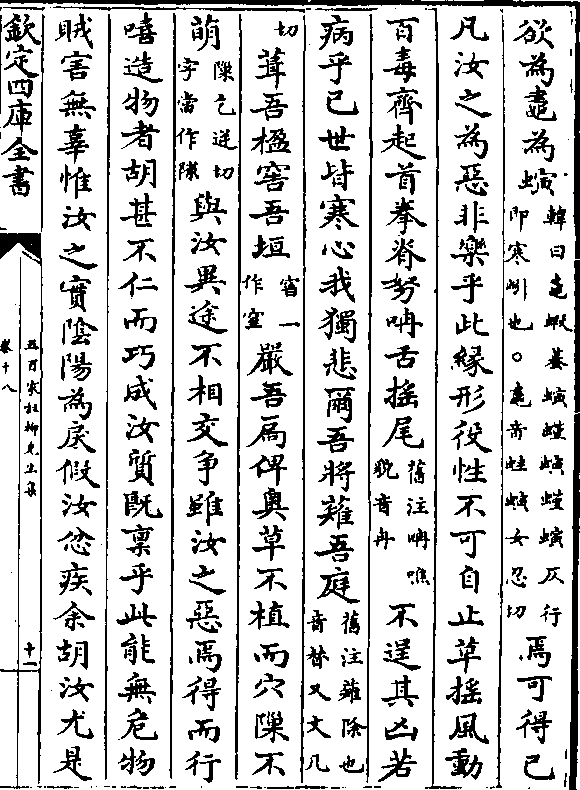 欲為鼃為螾韓曰鼃蝦蟇螾螘螾螘螾仄行即寒蚓也○鼃音蛙螾女忍切焉可得已
凡汝之為惡非樂乎此緣形役性不可自止草搖風動
百毒齊起首拳脊努呥舌搖尾舊注呥噍貌音冉不逞其凶若
病乎已世皆寒心我獨悲爾吾將薙吾庭舊注薙除也音替又文几
切葺吾楹窖吾垣窖一作窒嚴吾扃俾奥草不植而穴隟不
萌隟乞逆切字當作隙與汝異途不相交爭雖汝之惡焉得而行
嘻造物者胡甚不仁而巧成汝質既稟乎此能無危物
賊害無辜惟汝之實陰陽為戾假汝忿疾余胡汝尤是
欽定四庫全書
五百家注柳先生集
卷十八
十一